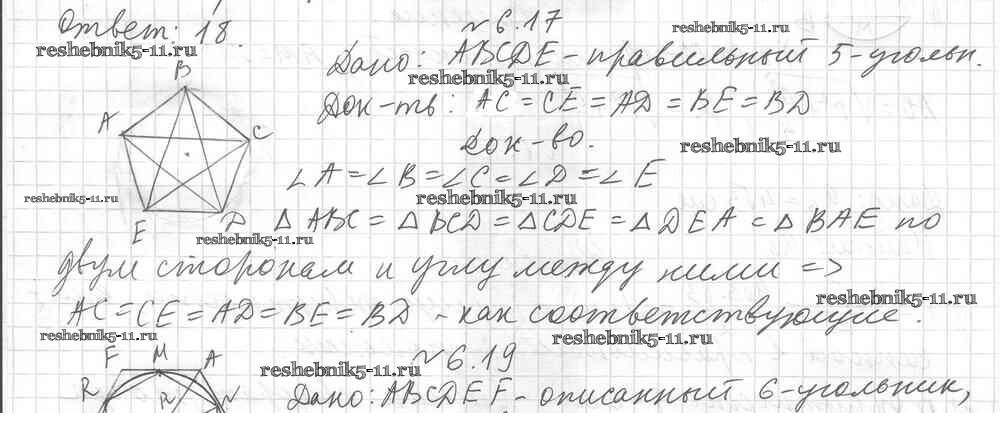 Ответ: 18.
№ 6.17
reshebnik5-11.ru
reshebnik5-11.ru
Дано: ABCDE - правильный 5-угольн.
reshebnik5-11.ru
B
Док-ть: AC = CE = AD = BE = BD
A
C
Док-во.
reshebnik5-11.ru
∠A = ∠B = ∠C = ∠D = ∠E
reshebnik5-11.ru
reshebnik5-11.ru
E
D
△ABC = △BCD = △CDE = △DEA = △BAE по
reshebnik5-11.ru
двум сторонам и углу между ними =>
reshebnik5-11.ru
AC = CE = AD = BE = BD - как соответствующие.
reshebnik5-11.ru
reshebnik5-11.ru
№ 6.19
reshebnik5-11.ru
F M A
R N
Дано: ABCDEF - описанный 6-угольник,